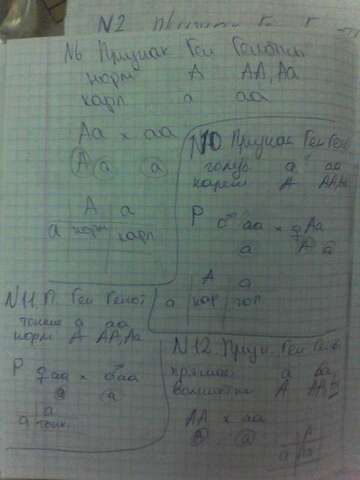 N2 Признак Ген
N6 Признак Ген Генотип
норм A AA, Aa
карл a aa
Aa × aa
A a a
A a
a норм карл
N10 Признак Ген Ген
голуб a aa
карие A AA, Aa
P ♂ aa × ♀ Aa
a A a
A a
a кар гол
N11. П. Ген Геноt
тонкие a aa
норм A AA, Aa
P ♀ aa × ♂ aa
a a
a
a тонк.
N12. Призн. Ген Ген
прямые a aa
волнистые A AA
AA × aa
A a
A
a Aa